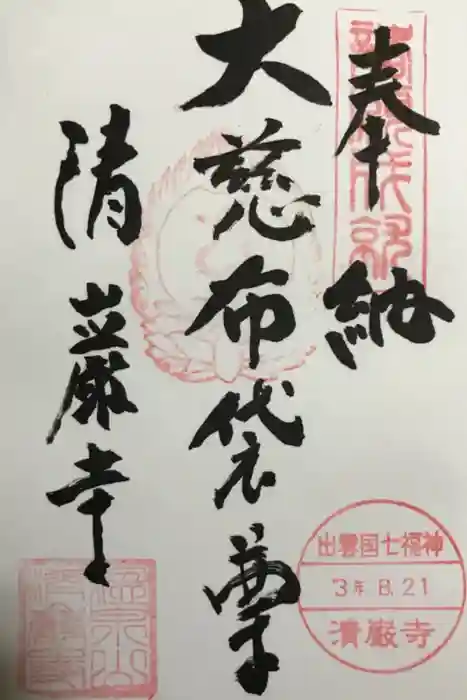 奉納
大慈布袋尊
清巖寺
出雲国七福神
'3年 8.21
清巌寺